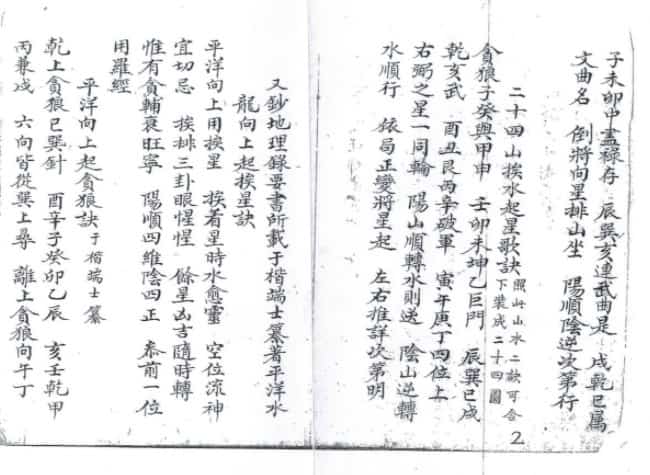 子未卯申盡祿存　辰巽亥連武曲是　戌乾巳属
文曲名　倒將向星排山坐　陽順陰逆次第行
二十四山挨水起星歌訣　照此山水二訣可合下裝成二十四圖
2
貪狼子癸與甲申　壬卯未坤乙巨門　辰巽巳戌
乾亥武　酉丑艮丙辛破軍　寅午庚丁四位上
右弼之星一同輪　陽山順轉水則逆　陰山逆轉
水順行　依局正變將星起　左右推詳次第明
又鈔地理錄要書所載于楷端士纂著平洋水
龍向上起挨星訣
平洋向上用挨星　挨着星時水愈靈　空位流神
宜切忌　挨排三卦眼惺惺　餘星凶吉隨時轉
惟有貪輔衰旺寧　陽順四維陰四正　泰前一位
用羅經
平洋向上起貪狼訣　于楷端士纂
乾上貪狼巳巽針　酉辛子癸卯乙辰　亥壬乾甲
丙兼戌　六向皆從巽上尋　離上貪狼向午丁